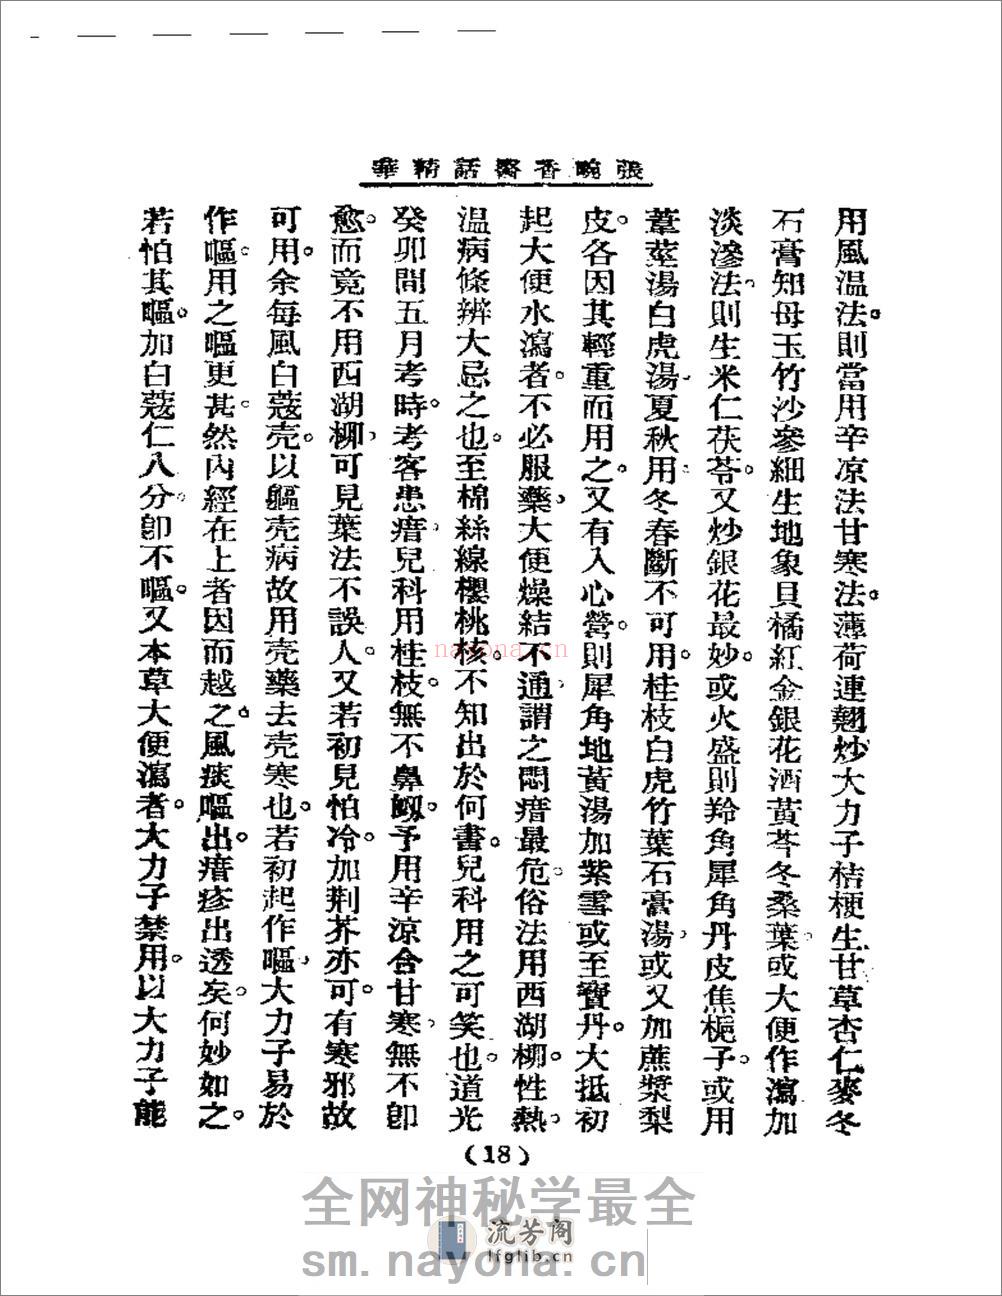 張畹香醫話精華
用風温法。則當用辛凉法甘寒法。薄荷連翹炒大力子桔梗生甘草杏仁麥冬
石膏知母玉竹沙參細生地象貝橘紅金銀花酒黃芩冬桑葉。或大便作瀉加
淡滲法。則生米仁茯苓。又炒銀花最妙。或火盛則羚角犀角丹皮焦梔子。或用
葦莖湯白虎湯。夏秋用。冬春斷不可用。桂枝白虎竹葉石膏湯。或又加蔗漿梨
皮。各因其輕重而用之。又有入心營。則犀角地黃湯加紫雪或至寶丹。大抵初
起大便水瀉者。不必服藥。大便燥結不通。謂之悶瘄最危。俗法用西湖柳。性熱。
温病條辨大忌之也。至棉絲線櫻桃核。不知出於何書。兒科用之可笑也。道光
癸卯間五月考時。考客患瘄。兒科用桂枝。無不鼻衂。予用辛涼合甘寒。無不卽
愈。而竟不用西湖柳。可見葉法不誤人。又若初見怕冷。加荆芥亦可。有寒邪故
可用。余每風白蔻壳。以軀壳病故用壳藥去壳寒也。若初起作嘔。大力子易於
作嘔。用之嘔更甚。然內經在上者因而越之。風痰嘔出。瘄疹出透矣。何妙如之。
若怕其嘔。加白蔻仁八分。卽不嘔。又本草大便瀉者。大力子禁用。以大力子能
(18)
nayona.cn
全网神秘学最全
流芳阁
lfglib.cn
sm.nayona.cn